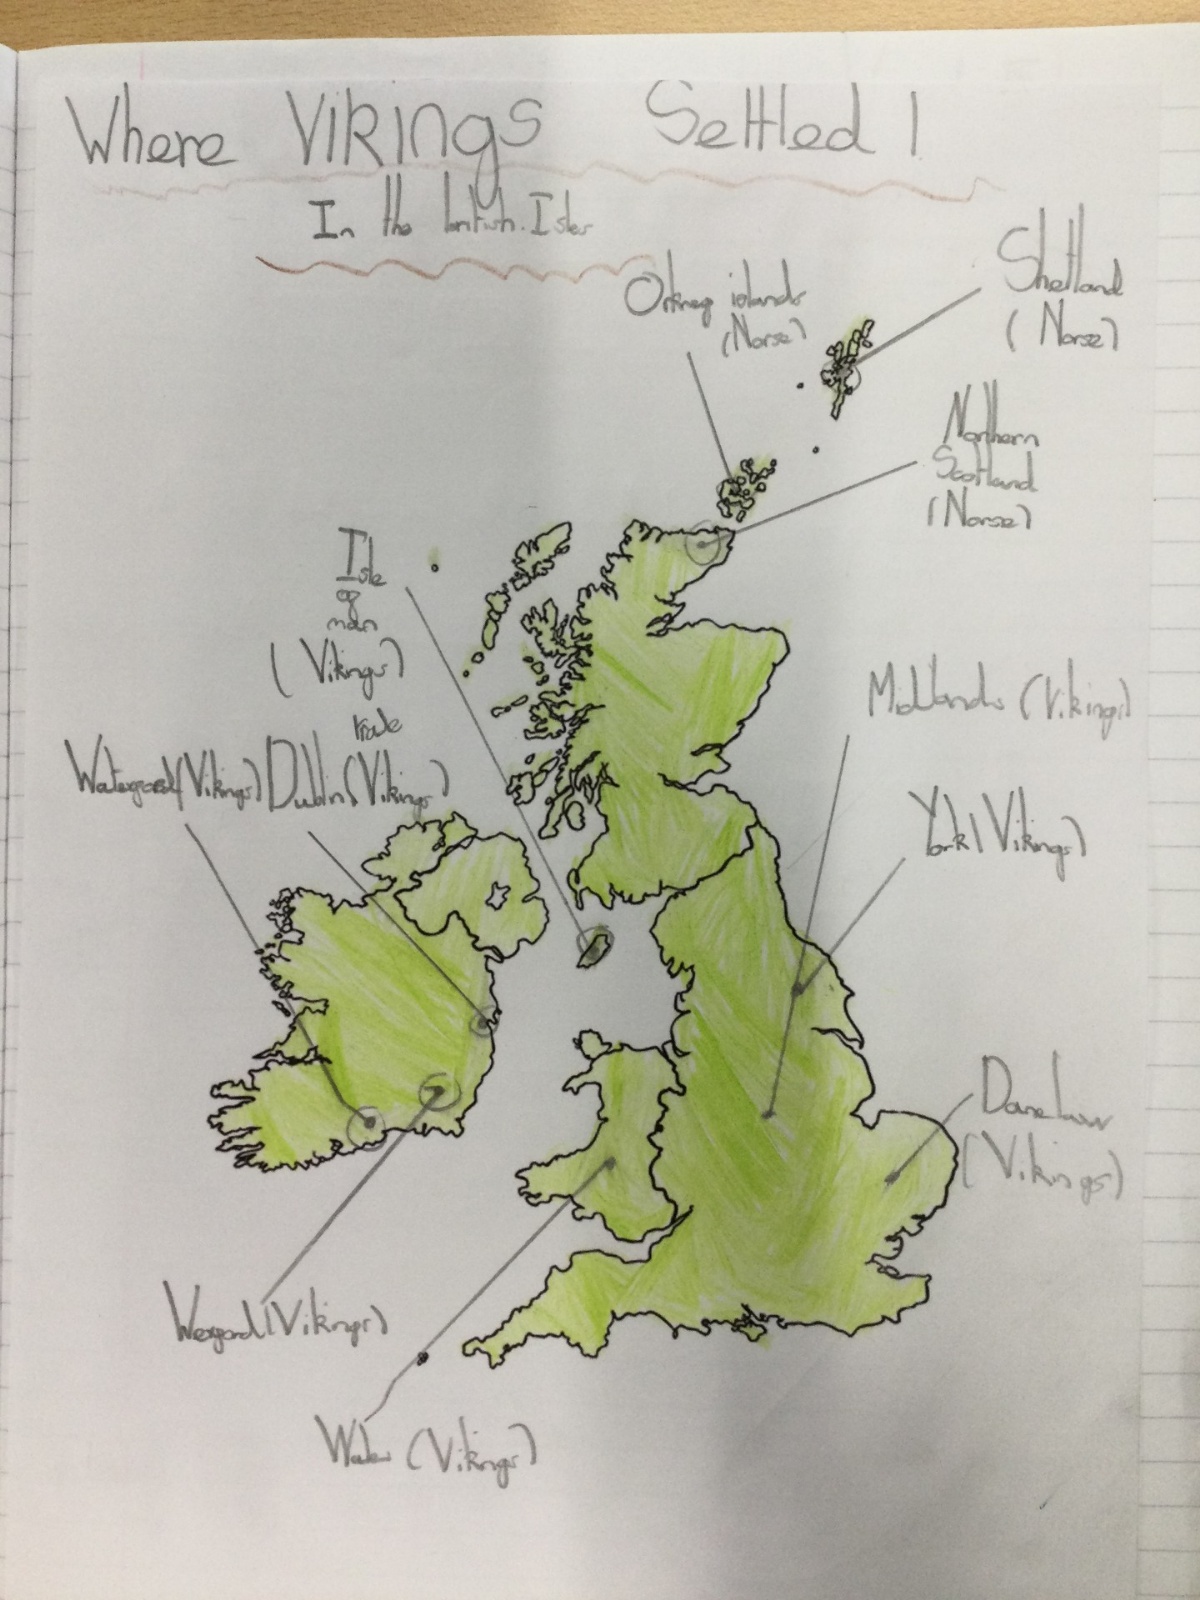 Where Vikings Settled!
In the british Isles
Orkney islands
(Norse)
Shetland
(Norse)
Northern
Scotland
(Norse)
Isle
of
man
(Vikings)
Midlands (Vikings)
Watergord (Vikings)
Dublin (Vikings)
York (Vikings)
Danelaw
(Vikings)
Wexgord (Vikings)
Wales (Vikings)